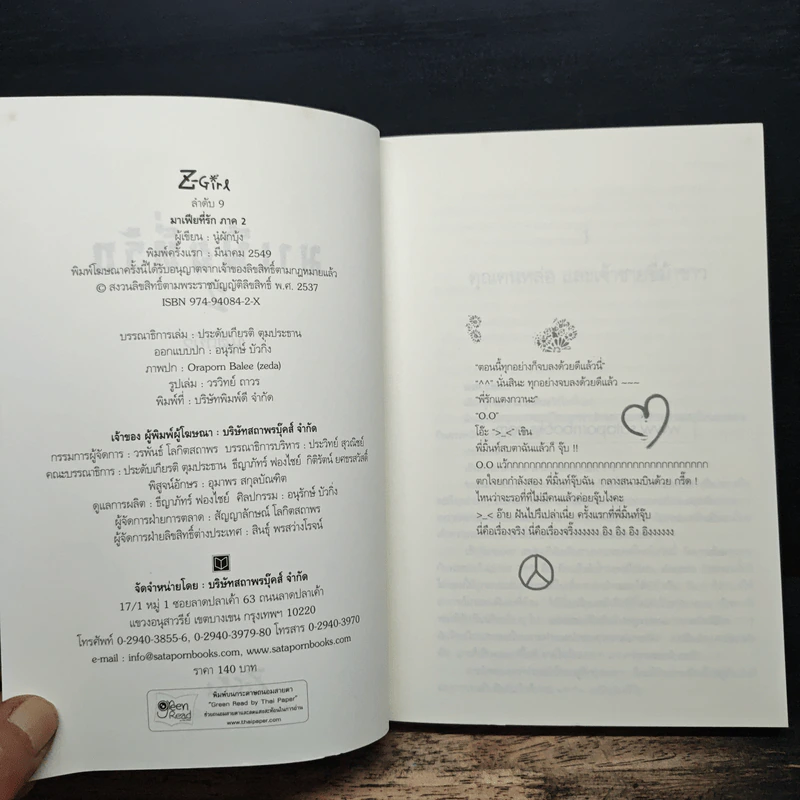 Z-Girl
ลำดับ 9
มาเฟียที่รัก ภาค 2
ผู้เขียน : นู๋ผักบุ้ง
พิมพ์ครั้งแรก : มีนาคม 2549
พิมพ์โฆษณาครั้งนี้ได้รับอนุญาตจากเจ้าของลิขสิทธิ์ตามกฎหมายแล้ว
© สงวนลิขสิทธิ์ตามพระราชบัญญัติลิขสิทธิ์ พ.ศ. 2537
ISBN 974-94084-2-X
บรรณาธิการเล่ม : ประดับเกียรติ ตุมประธาน
ออกแบบปก : อนุรักษ์ บัวกิ่ง
ภาพปก : Oraporn Balee (zeda)
รูปเล่ม : วรวิทย์ ถาวร
พิมพ์ที่ : บริษัทพิมพ์ดี จำกัด
เจ้าของ ผู้พิมพ์ผู้โฆษณา : บริษัทสถาพรบุ๊คส์ จำกัด
กรรมการผู้จัดการ : วรพันธ์ โลกิตสถาพร บรรณาธิการบริหาร : ประวิทย์ สุวณิชย์
คณะบรรณาธิการ : ประดับเกียรติ ตุมประธาน ธีญาภัทร์ ฟองไชย์ กิติรัตน์ ยศธรสวัสดิ์
พิสูจน์อักษร : อุมาพร สกุลบัณฑิต
ดูแลการผลิต : ธีญาภัทร์ ฟองไชย์ ศิลปกรรม : อนุรักษ์ บัวกิ่ง
ผู้จัดการฝ่ายการตลาด : สัญญาลักษณ์ โลกิตสถาพร
ผู้จัดการฝ่ายลิขสิทธิ์ต่างประเทศ : สินธุ์ พรสว่างโรจน์
จัดจำหน่ายโดย : บริษัทสถาพรบุ๊คส์ จำกัด
17/1 หมู่ 1 ซอยลาดปลาเค้า 63 ถนนลาดปลาเค้า
แขวงอนุสาวรีย์ เขตบางเขน กรุงเทพฯ 10220
โทรศัพท์ 0-2940-3855-6, 0-2940-3979-80 โทรสาร 0-2940-3970
e-mail : info@satapornbooks.com, www.satapornbooks.com
ราคา 140 บาท
green Read
พิมพ์บนกระดาษถนอมสายตา
"Green Read by Thai Paper"
ช่วยถนอมสายตาและลดแสงสะท้อนในการอ่าน
www.thaipaper.com
"ตอนนี้ทุกอย่างก็จบลงด้วยดีแล้วนี่"
"^^" นั่นสินะ ทุกอย่างจบลงด้วยดีแล้ว ~~~
"พี่รักแตงกวานะ"
"O.O"
โอ๊ะ ">_<" เขิน
พี่มิ้นท์สบตาฉันแล้วก็ จุ๊บ !!
O.O แว้กกกกกกกกกกกกกกกกกกกกกกกกกกกกกกกกกกก
ตกใจยกกำลังสอง พี่มิ้นท์จุ๊บฉัน กลางสนามบินด้วย กรี๊ด !
ไหนว่าจะรอที่ที่ไม่มีคนแล้วค่อยจุ๊บไงคะ
>_< อ๊าย ฝันไปรึเปล่าเนี่ย ครั้งแรกที่พี่มิ้นท์จุ๊บ
นี่คือเรื่องจริง นี่คือเรื่องจริ๊งงงงงง อิง อิง อิง อิงงงงงง